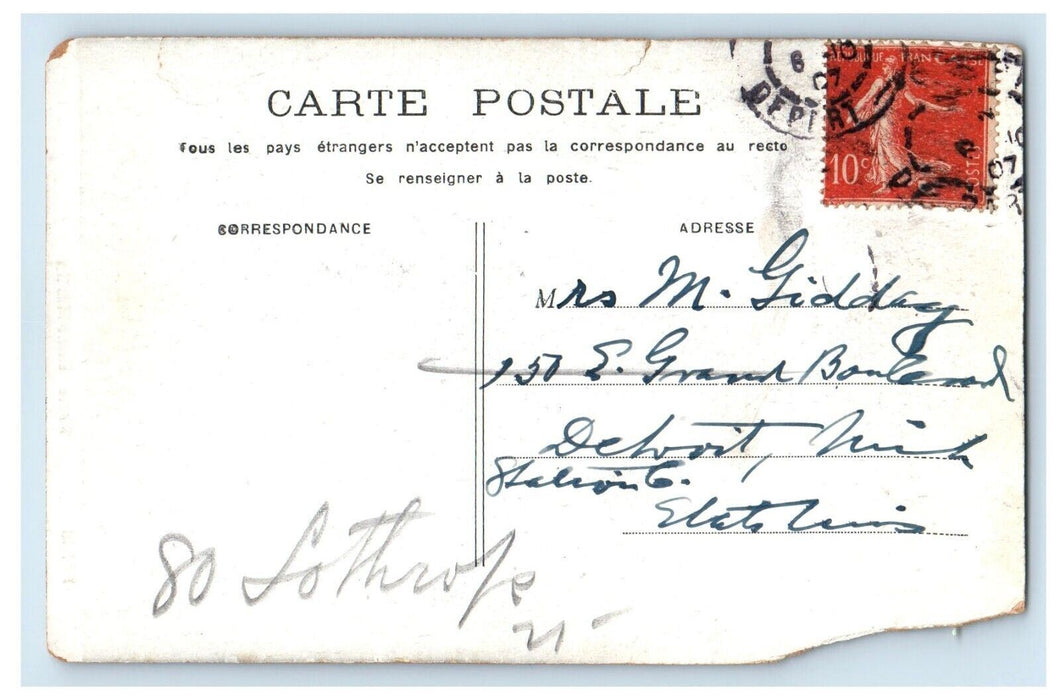 CARTE POSTALE
Tous les pays étrangers n'acceptent pas la correspondance au recto
Se renseigner à la poste.
CORRESPONDANCE
ADRESSE
10c
POSTES
DEPART
07
Mrs M. Gidday
150 E. Grand Boulevard
Detroit, Mich
Station C.
Etats Unis
80 Lothrop